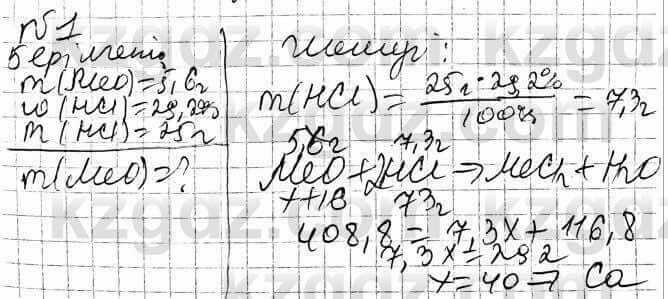 №1
Берілгені:
m(MeO)=5,6г
w(HCl)=29,2%
m(HCl)=25г
m(MeO)=?
Шешуі:
m(HCl)= 25г·29,2% / 100% = 7,3г
5,6г 7,3г
MeO+2HCl→MeCl₂+H₂O
x+16 73г
408,8=7,3x+116,8
7,3x=292
x=40⇒Ca